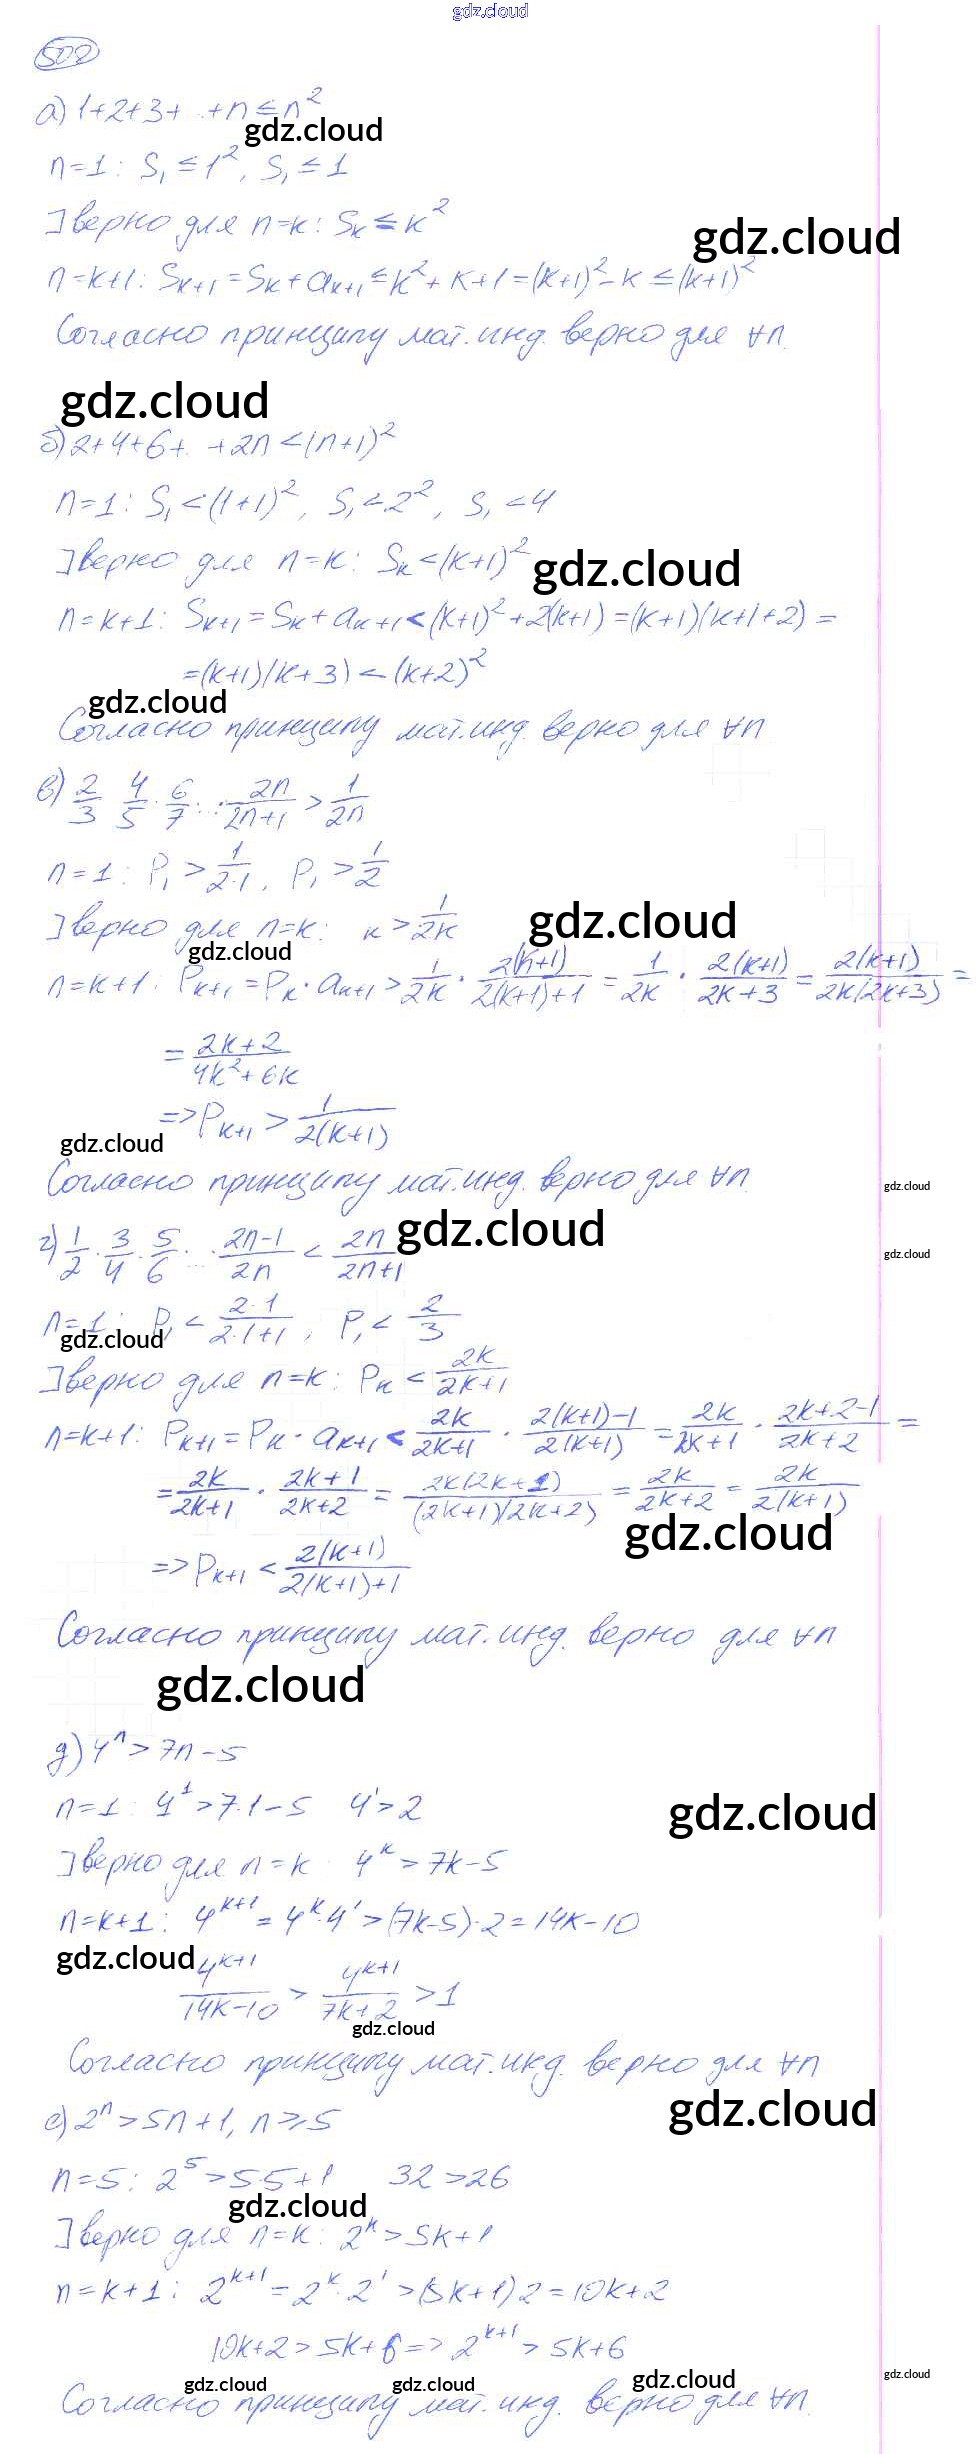 gdz.cloud
502
а) 1+2+3+...+n ≤ n²
gdz.cloud
n=1: S₁ ≤ 1², S₁ ≤ 1
] верно для n=k: Sₖ ≤ k²
gdz.cloud
n=k+1: Sₖ₊₁ = Sₖ + aₖ₊₁ ≤ k² + k + 1 = (k+1)² - k ≤ (k+1)²
Согласно принципу мат. инд. верно для ∀n.
gdz.cloud
б) 2+4+6+...+2n < (n+1)²
n=1: S₁ < (1+1)², S₁ < 2², S₁ < 4
] верно для n=k: Sₖ < (k+1)²
gdz.cloud
n=k+1: Sₖ₊₁ = Sₖ + aₖ₊₁ < (k+1)² + 2(k+1) = (k+1)(k+1+2) =
= (k+1)(k+3) < (k+2)²
gdz.cloud
Согласно принципу мат. инд. верно для ∀n.
в) 2/3 · 4/5 · 6/7 ·...· 2n/(2n+1) > 1/2n
n=1: P₁ > 1/(2·1), P₁ > 1/2
] верно для n=k: k > 1/2k
gdz.cloud
gdz.cloud
n=k+1: Pₖ₊₁ = Pₖ · aₖ₊₁ > 1/2k · 2(k+1)/(2(k+1)+1) = 1/2k · 2(k+1)/(2k+3) = 2(k+1)/(2k(2k+3)) =
= (2k+2)/(4k²+6k)
=> Pₖ₊₁ > 1/(2(k+1))
gdz.cloud
Согласно принципу мат. инд. верно для ∀n.
gdz.cloud
г) 1/2 · 3/4 · 5/6 ·...· (2n-1)/2n < 2n/(2n+1)
gdz.cloud
gdz.cloud
n=1: P₁ < (2·1)/(2·1+1), P₁ < 2/3
gdz.cloud
] верно для n=k: Pₖ < 2k/(2k+1)
n=k+1: Pₖ₊₁ = Pₖ · aₖ₊₁ < 2k/(2k+1) · (2(k+1)-1)/(2(k+1)) = 2k/(2k+1) · (2k+2-1)/(2k+2) =
= 2k/(2k+1) · (2k+1)/(2k+2) = 2k(2k+1)/((2k+1)(2k+2)) = 2k/(2k+2) = 2k/(2(k+1))
gdz.cloud
=> Pₖ₊₁ < 2(k+1)/(2(k+1)+1)
Согласно принципу мат. инд. верно для ∀n
gdz.cloud
д) 4ⁿ > 7n - 5
n=1: 4¹ > 7·1 - 5 4¹ > 2
gdz.cloud
] верно для n=k 4ᵏ > 7k - 5
n=k+1: 4ᵏ⁺¹ = 4ᵏ·4¹ > (7k-5)·2 = 14k - 10
gdz.cloud
4ᵏ⁺¹/(14k-10) > 4ᵏ⁺¹/(7k+2) > 1
gdz.cloud
Согласно принципу мат. инд. верно для ∀n
gdz.cloud
е) 2ⁿ > 5n + 1, n ≥ 5
n=5: 2⁵ > 5·5 + 1 32 > 26
gdz.cloud
] верно для n=k: 2ᵏ > 5k + 1
n=k+1: 2ᵏ⁺¹ = 2ᵏ·2¹ > (5k+1)2 = 10k + 2
10k+2 > 5k+6 => 2ᵏ⁺¹ > 5k+6
gdz.cloud
gdz.cloud
gdz.cloud
gdz.cloud
Согласно принципу мат. инд. верно для ∀n.